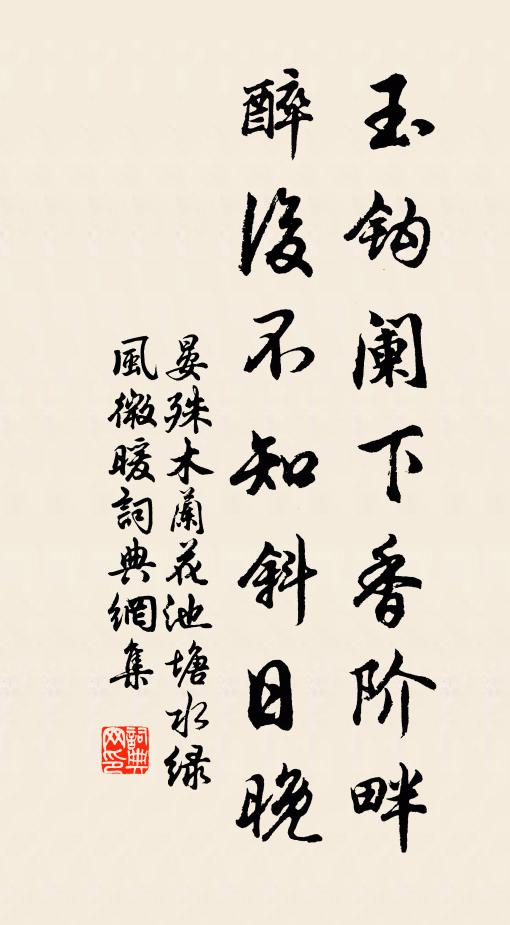 玉钩阑下香阶畔
醉後不知斜日晚
晏殊木蘭花池塘水绿
風微暖詞典網集
詞典
网印